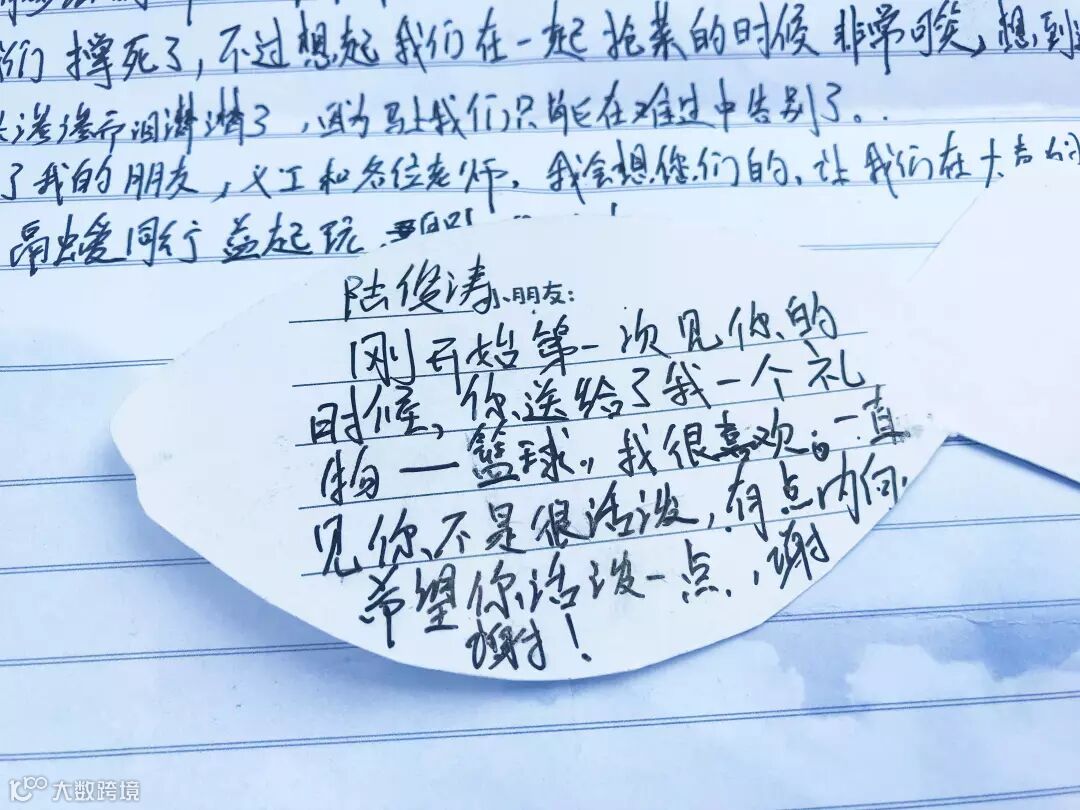 们撑死了,不过想起我们在一起抢菜的时候非常可笑,想到
泪淋淋了,因为马上我们只能在难过中告别了..
了我的朋友,义工和各位老师,我会想您们的,让我们在大声
爱同行益起玩
陆俊涛小朋友:
刚开始第一次见你的
时候,你送给了我一个礼
物—篮球,我很喜欢。一直
见你不是很活泼,有点内向,
希望你活泼一点,谢
谢!
大数跨境